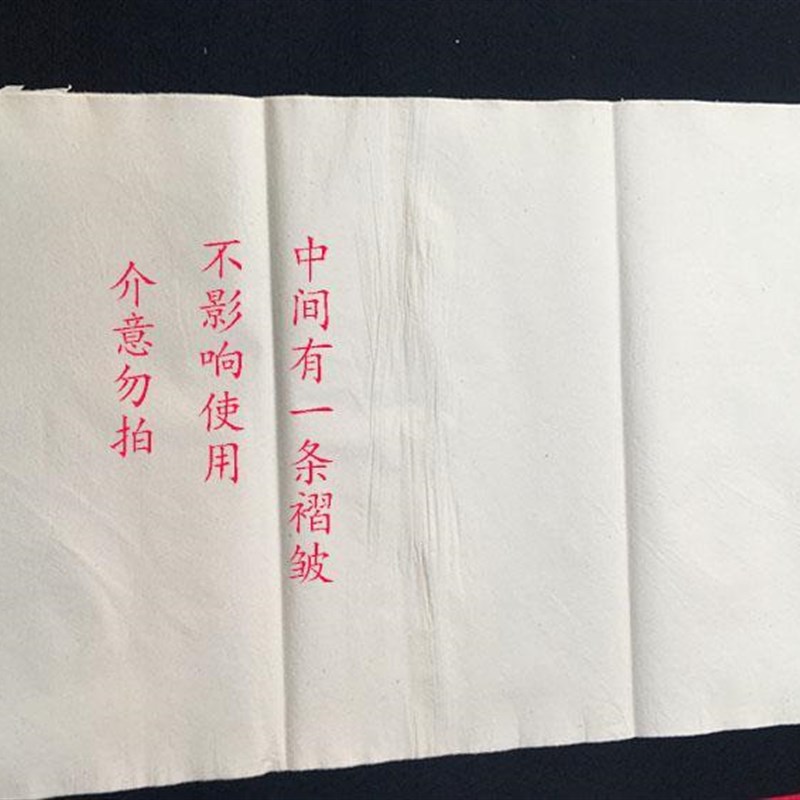 中间有一条褶皱
不影响使用
介意勿拍